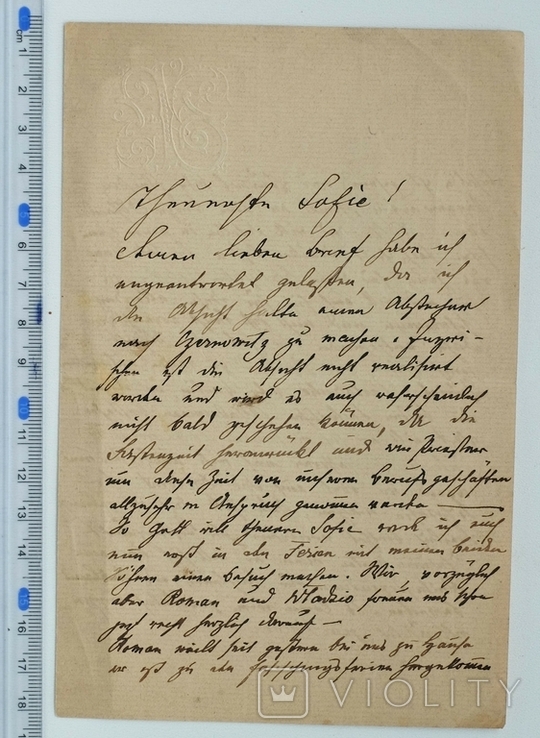 Theuerste Sofie!
Ihren lieben Brief habe ich
ungeantwortet gelassen, da ich
die Absicht hatte einen Abstecher
nach Czernowitz zu machen. Inzwi-
schen ist die Absicht nicht realisirt
worden und wird es auch wahrscheinlich
nicht bald geschehen können, da die
Fastenzeit heranrückt und wir Priester
um diese Zeit von unseren Berufsgeschäften
allzusehr in Anspruch genommen werden —
So Gott will theuere Sofie werde ich euch
nun erst in den Ferien mit meinen beiden
Söhnen einen Besuch machen. Wir, vorzüglich
aber Roman und Wladzio freuen uns schon
jetzt recht herzlich darauf —
Roman weilt seit gestern bei uns zu Hause
er ist zu den hergekommen
VIOLITY
cm 1
2
3
4
5
6
7
8
9
10
11
12
13
14
15
16
17
18